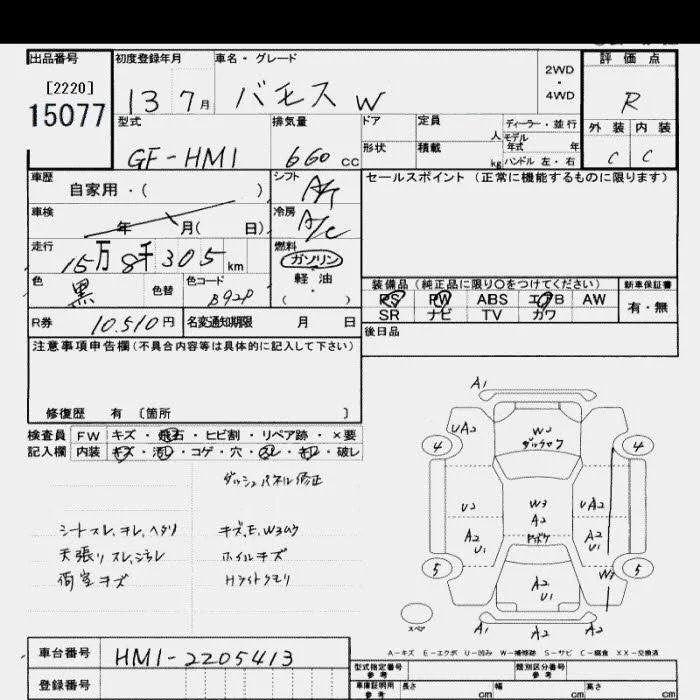 出品番号
[2220]
15077
初度登録年月
13 7月
車名・グレード
バモス W
2WD
・
4WD
評価点
R
外装 内装
C C
型式
GF-HM1
排気量
660 CC
ドア
形状
定員
人
積載
kg
ディーラー・並行
モデル
年式 年
ハンドル 左・右
車歴
自家用・( )
シフト
A/T
車検
年 月( 日)
冷房
A/C
走行
15万8千305km
燃料
ガソリン
軽油
( )
色
黒
色替
色コード
B92P
R券
10,510円
名変通知期限 月 日
セールスポイント (正常に機能するものに限ります)
装備品 (純正品に限り○をつけてください)
PS PW ABS エアB AW
SR ナビ TV カワ
新車保証書
有・無
後日品
注意事項申告欄(不具合内容等は具体的に記入して下さい)
修復歴 有 〔箇所 〕
検査員
記入欄
FW キズ・飛石・ヒビ割・リペア跡・×要
内装 キズ・汚レ・コゲ・穴・スレ・キレ・破レ
ダッシュパネル修正
シートスレ、キレ、ヘタリ
キズ、E、W3ムラ
天張リスレ、シミレ
ホイルキズ
荷室キズ
Hライトクモリ
A1
UA2
W2
4
4
U2
W3
A2
UA2
A2
U1
A2
U1
5
5
W2
A2
U1
スペア
A1
A2
A2
A-キズ E-エクボ U-凹み W-補修跡 S-サビ C-腐食 XX-交換済
車台番号
HM1-2205413
登録番号
型式指定番号
参考
類別区分番号
参考
車庫証明用
参考
長さ
cm
幅
cm
高さ
cm